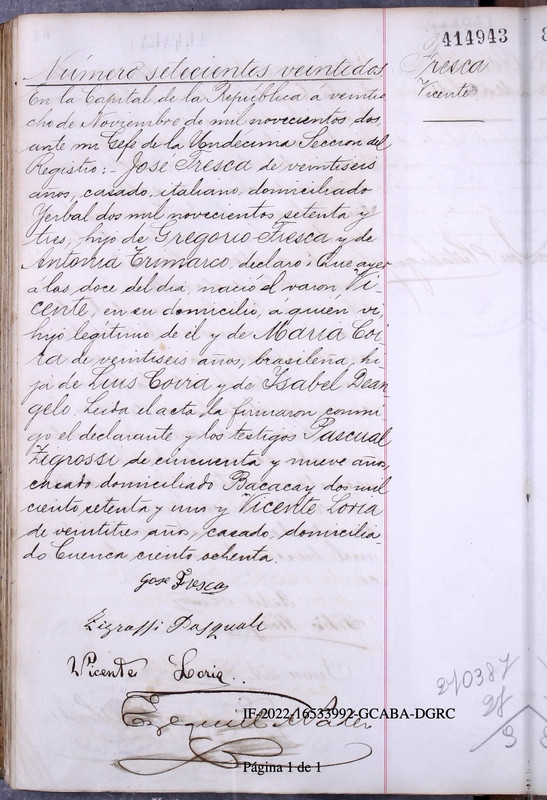 414943
Fresca
Vicente
Número setecientos veintidos
En la Capital de la República a veintio
cho de Noviembre de mil novecientos dos,
ante mi Gefe de la Undécima Seccion del
Registro:- José Fresca de veintiseis
años, casado, italiano, domiciliado
Yerbal dos mil novecientos setenta y
tres, hijo de Gregorio Fresca y de
Antonia Trimarco, declaró: Que ayer
a las doce del dia, nació el varon Vi-
cente, en su domicilio, á quien ví,
hijo legítimo de él y de María Coi-
ra de veintiseis años, brasileña, hi-
ja de Luis Coira y de Isabel Dean-
gelo. Leida el acta, la firmaron conmi
go el declarante y los testigos Pascual
Zigrossi, de cincuenta y nueve años,
casado domiciliado Bacacay dos mil
ciento setenta y uno y Vicente Loria
de veintitres años, casado, domicilia-
do Cuenca ciento ochenta.
Gose Fresca
Zigrossi Pasquale
Vicente Loria
Ezequiel
IF-2022-16533992-GCABA-DGRC
270387
28
Página 1 de 1